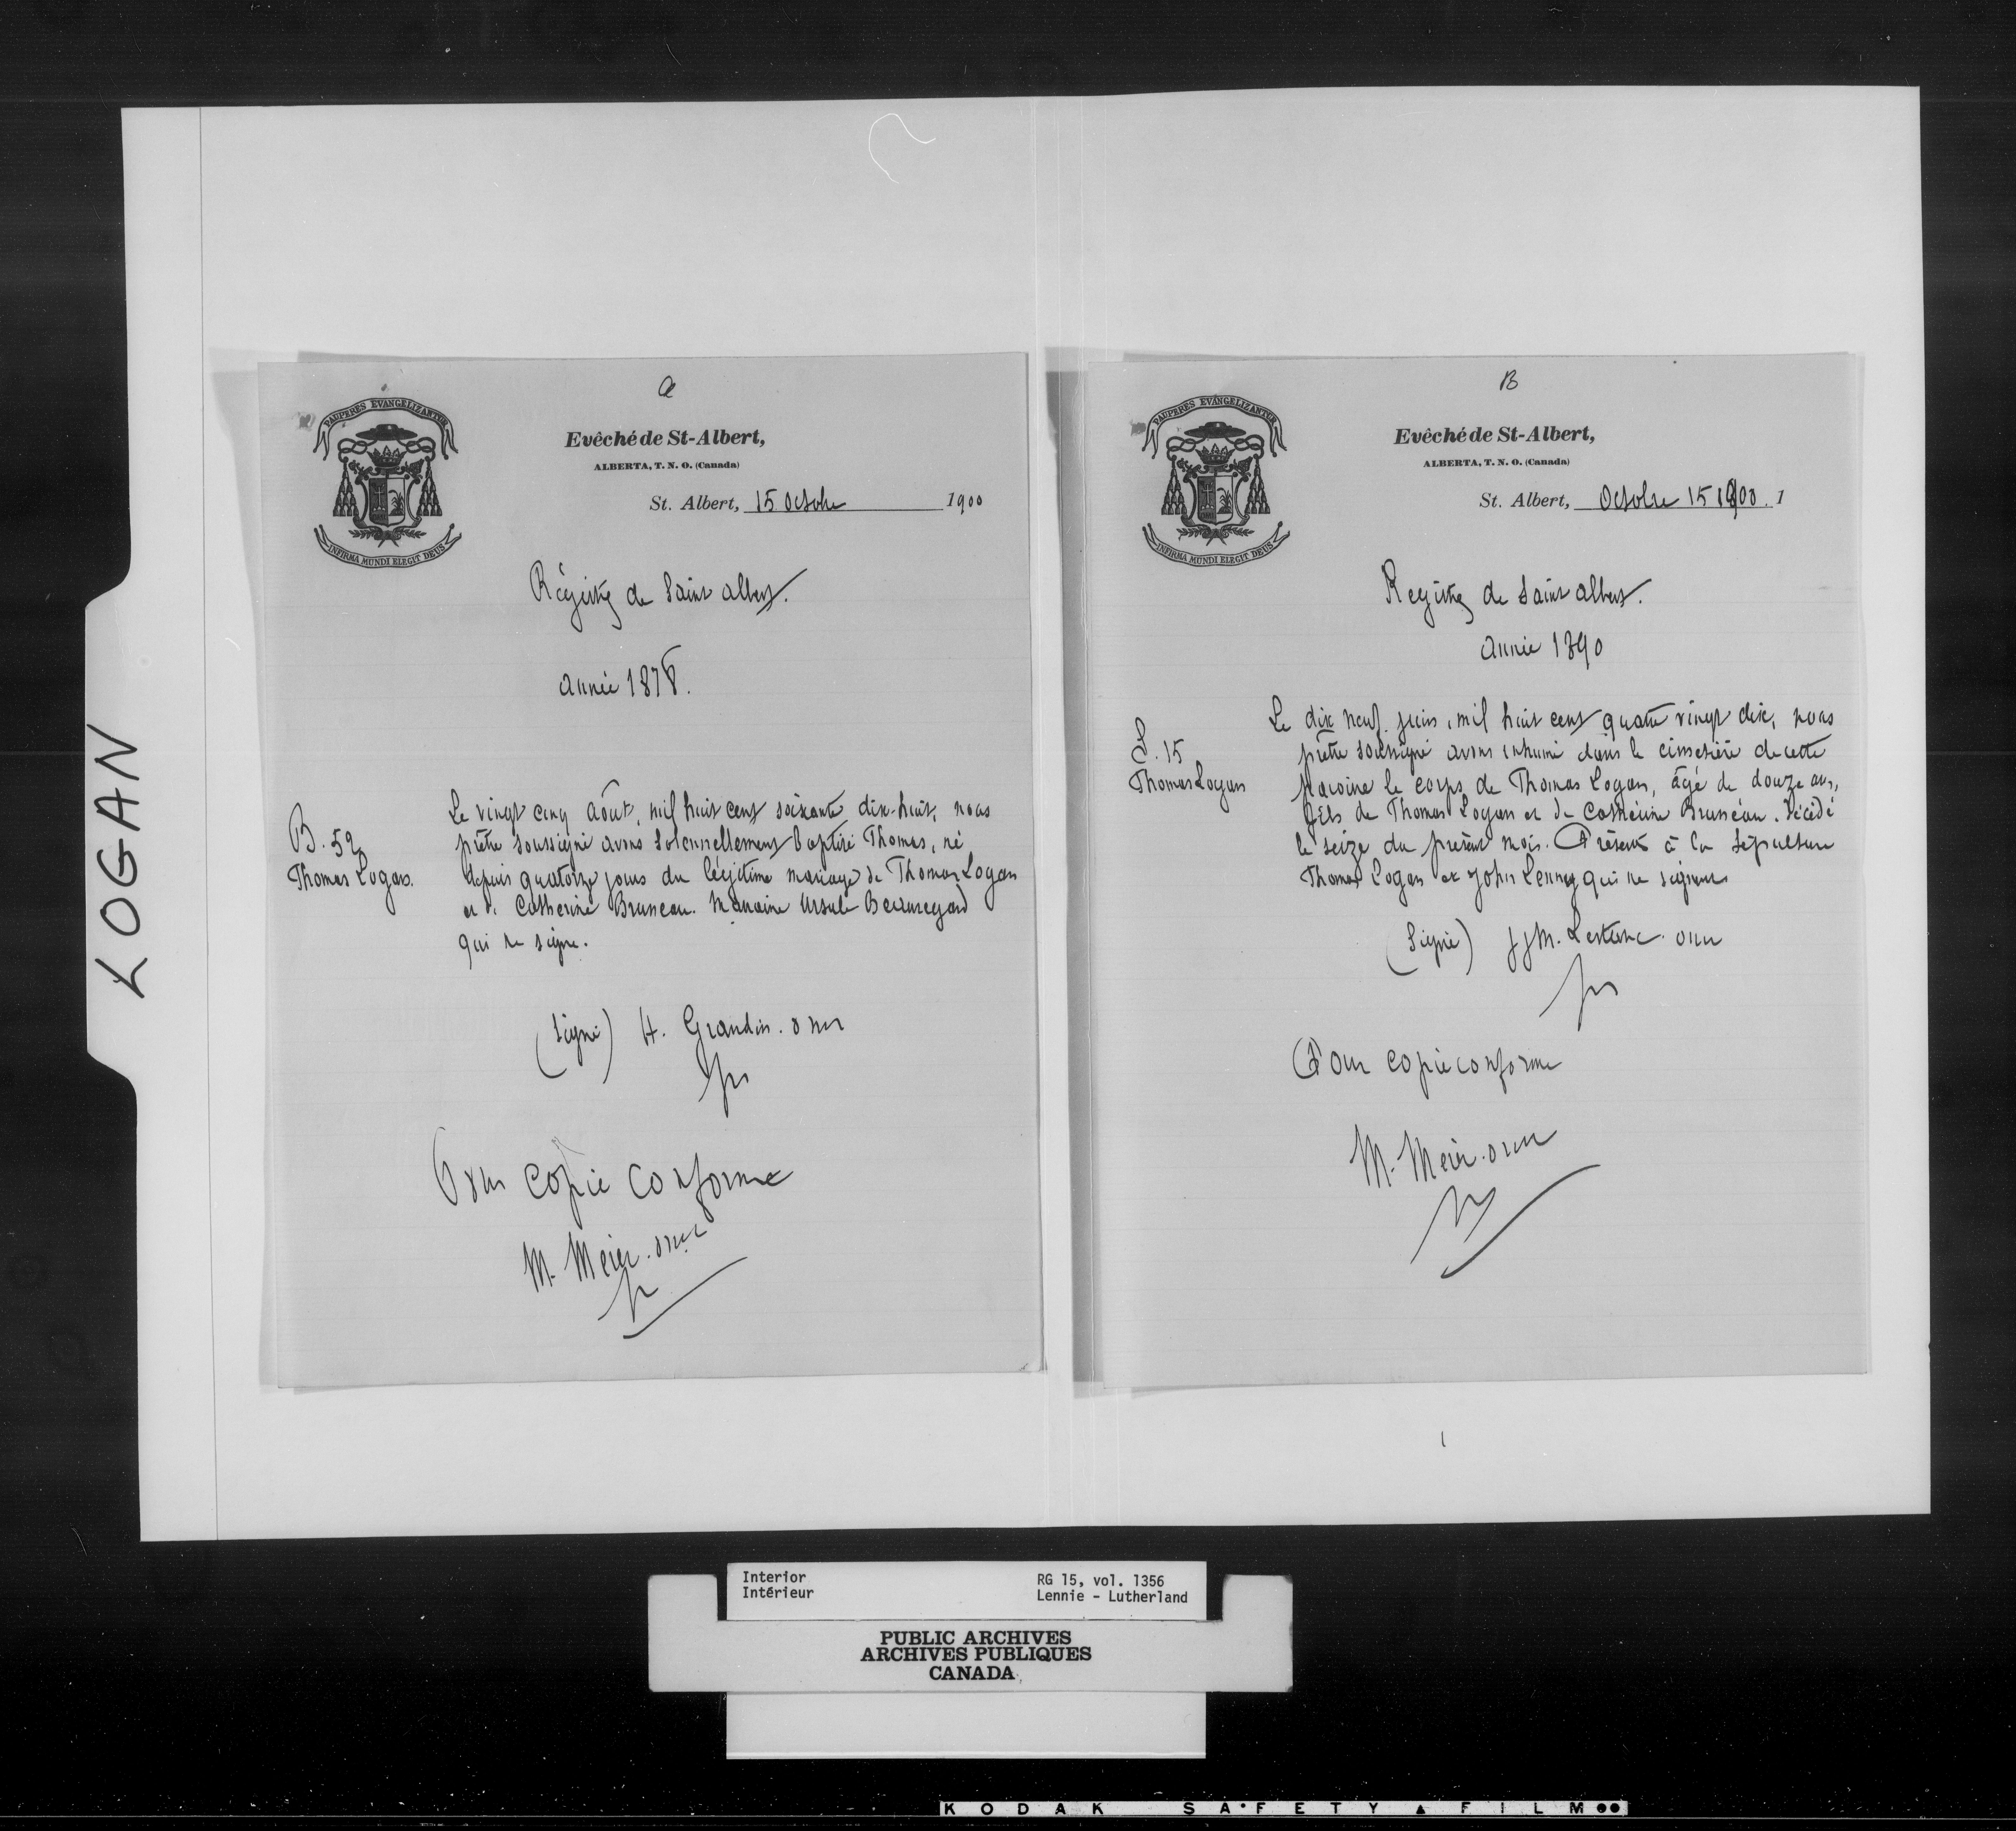 LOGAN
a
PAUPERES EVANGELIZANTUR
INFIRMA MUNDI ELEGIT DEUS
Evêché de St-Albert,
ALBERTA, T. N. O. (Canada)
St. Albert, 15 Octobre 1900
Régistre de Saint Albert.
Année 1878.
B. 52
Thomas Logan.
Le vingt cinq Août, mil huit cent soixante dix-huit, nous
prêtre soussigné avons solennellement baptisé Thomas, né
depuis quatorze jours du légitime mariage de Thomas Logan
et de Catherine Bruneau. Marraine Ursule Beauregard
qui ne signe.
(Signé) H. Grandin. omi
ptre
Pour copie conforme
M. Meier. omi
B
PAUPERES EVANGELIZANTUR
INFIRMA MUNDI ELEGIT DEUS
Evêché de St-Albert,
ALBERTA, T. N. O. (Canada)
St. Albert, Octobre 15 1900. 1
Registre de Saint Albert.
Année 1890
S. 15
Thomas Logan
Le dix neuf juin, mil huit cent quatre vingt dix, nous
prêtre soussigné avons inhumé dans le cimetière de cette
paroisse le corps de Thomas Logan, âgé de douze ans,
fils de Thomas Logan et de Catherine Bruneau. Décédé
le seize du présent mois. Présents à la sépulture
Thomas Logan et John Lenney qui ne signent
(Signé) JJM. Lestanc. omi
ptre
Pour copie conforme
M. Meier. omi
Interior
Intérieur
RG 15, vol. 1356
Lennie - Lutherland
PUBLIC ARCHIVES
ARCHIVES PUBLIQUES
CANADA
KODAK SAFETY FILM